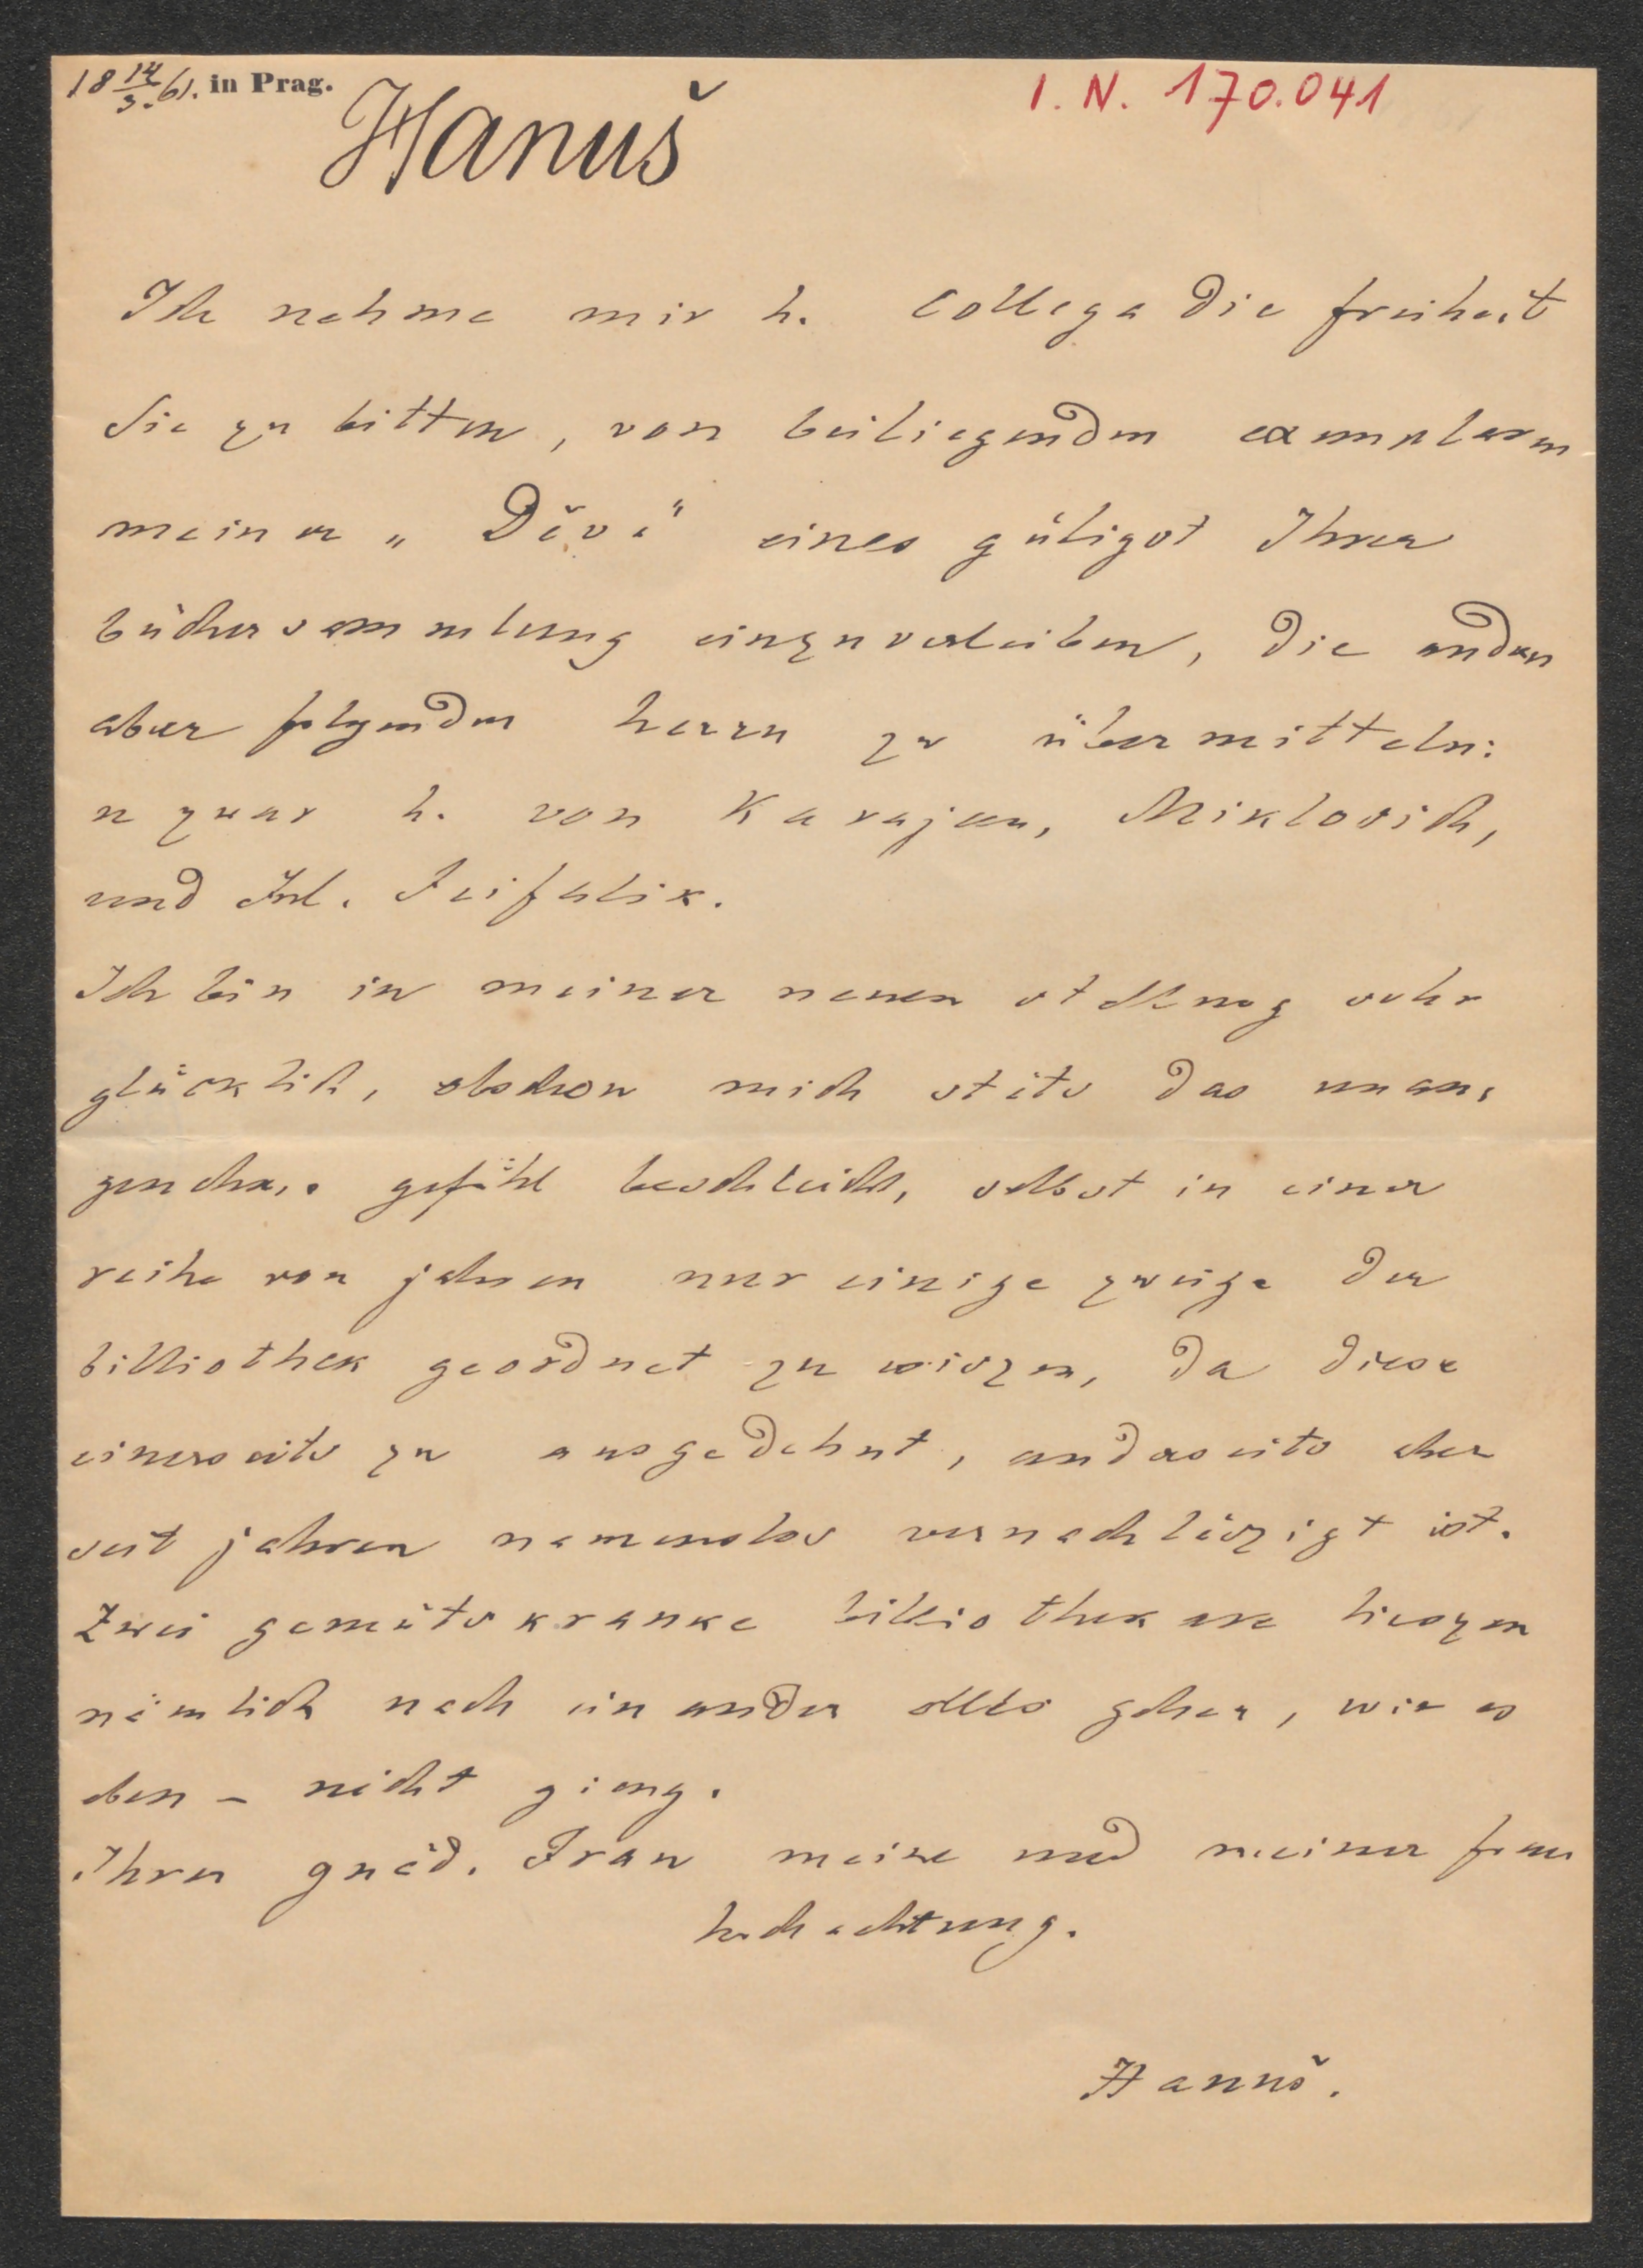 18 14/3. 61. in Prag.
Hanuš
I. N. 170.041
Ich nehme mir h. Collega die freiheit
Sie zu bitten, von beiliegenden exemplaren
meiner „Děva" eines gütigst Ihrer
büchersammlung einzuverleiben, die andern
aber folgenden herrn zu übermitteln:
u zwar h. von Karajan, Miklosich,
und Jul. Feifalik.
Ich bin in meiner neuen stellung sehr
glücklich, obschon mich stets das unan-
genehme gefühl beschleicht, selbst in einer
reihe von jahren nur einige zweige der
bibliothek geordnet zu wiszen, da diese
einerseits zu ausgedehnt, anderseits aber
seit jahren namenlos vernachläszigt ist.
Zwei gemütskranke bibliothekare lieszen
nämlich nach einander alles gehen, wie es
eben – nicht gieng.
Ihrer gnäd. Frau meine und meiner frau
hochachtung.
Hanuš.